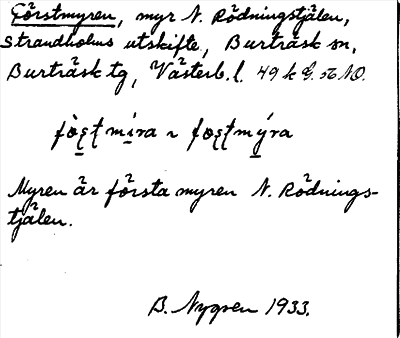 Förstmyren, myr N. Rödningstjälen,
Strandholms utskifte, Burträsk sn,
Burträsk tg, Västerb. l. 49 k
Myren är första myren N. Rödnings-
tjälen.
B. Nygren 1933.